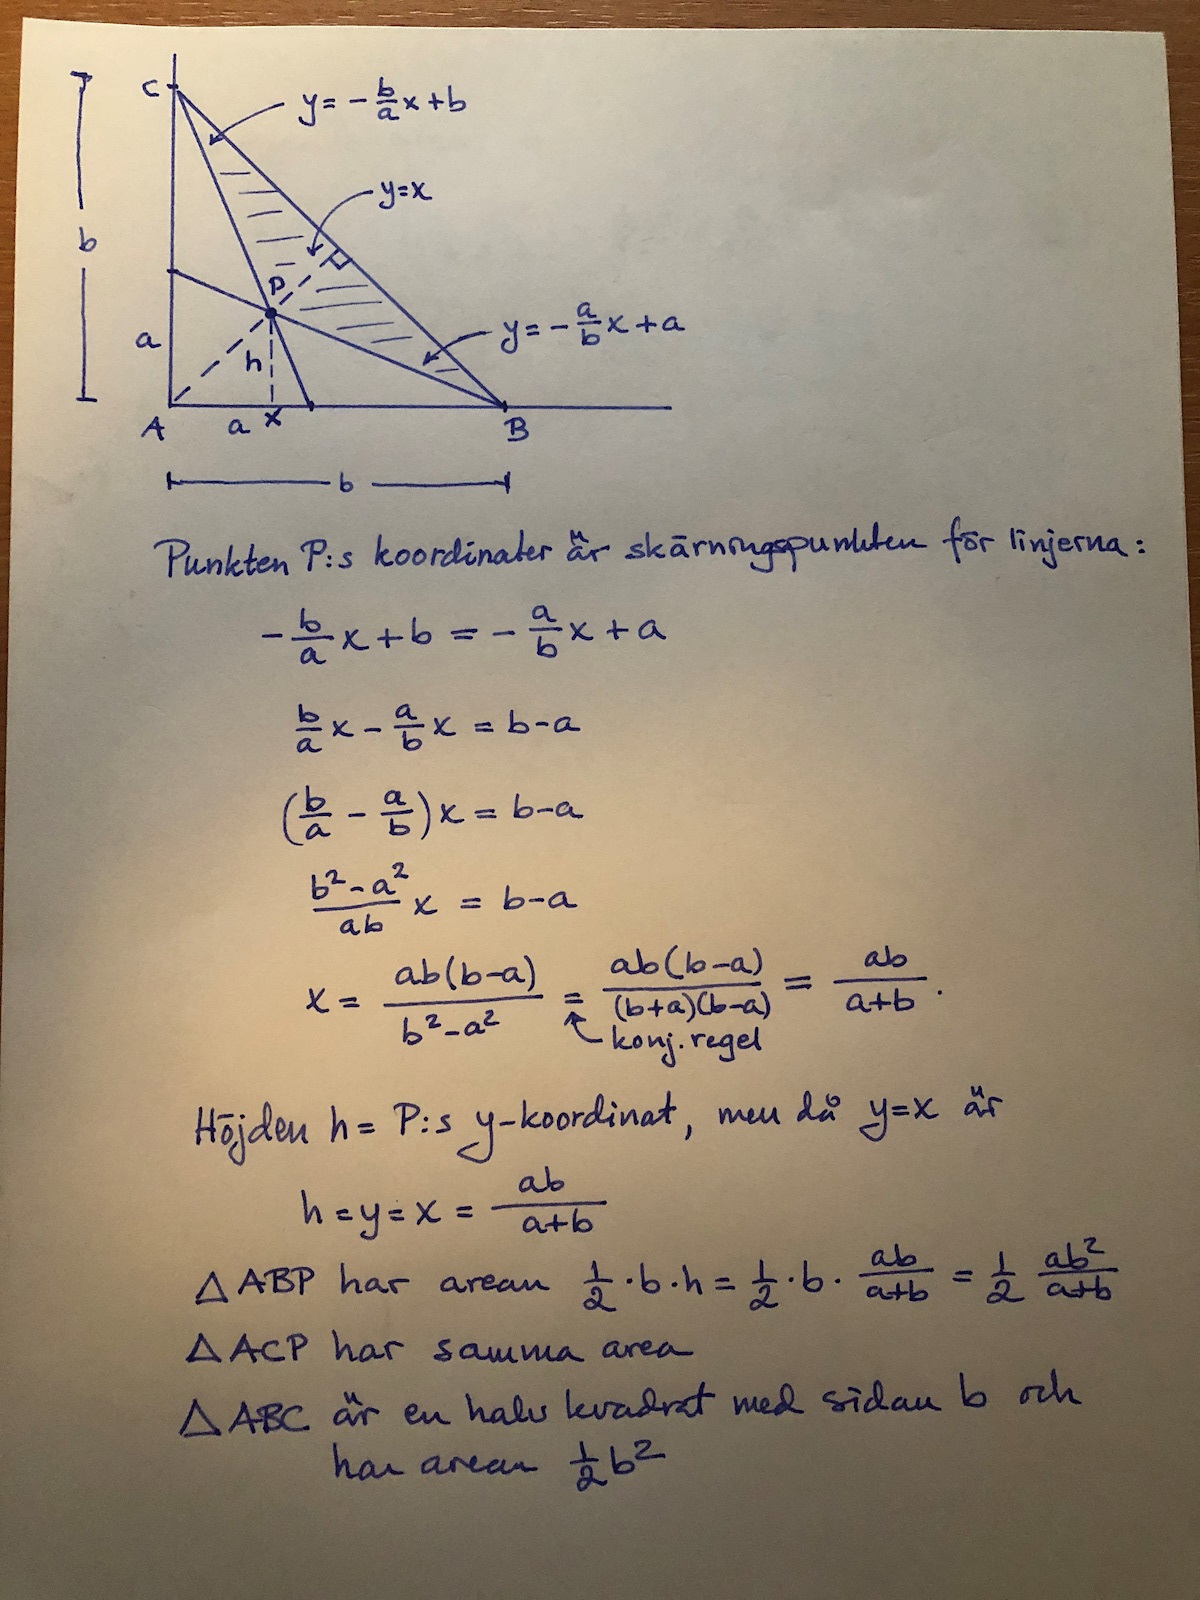 C
y = -b/a x + b
y=x
b
P
y = -a/b x + a
a
h
A
a
x
B
b
Punkten P:s koordinater är skärningspunkten för linjerna:
-b/a x + b = -a/b x + a
b/a x - a/b x = b-a
(b/a - a/b) x = b-a
b²-a²/ab x = b-a
x = ab(b-a)/b²-a² = ab(b-a)/(b+a)(b-a) = ab/a+b.
konj.regel
Höjden h = P:s y-koordinat, men då y=x är
h=y=x = ab/a+b
△ABP har arean 1/2·b·h = 1/2·b·ab/a+b = 1/2 ab²/a+b
△ACP har samma area
△ABC är en halv kvadrat med sidan b och
har arean 1/2 b²